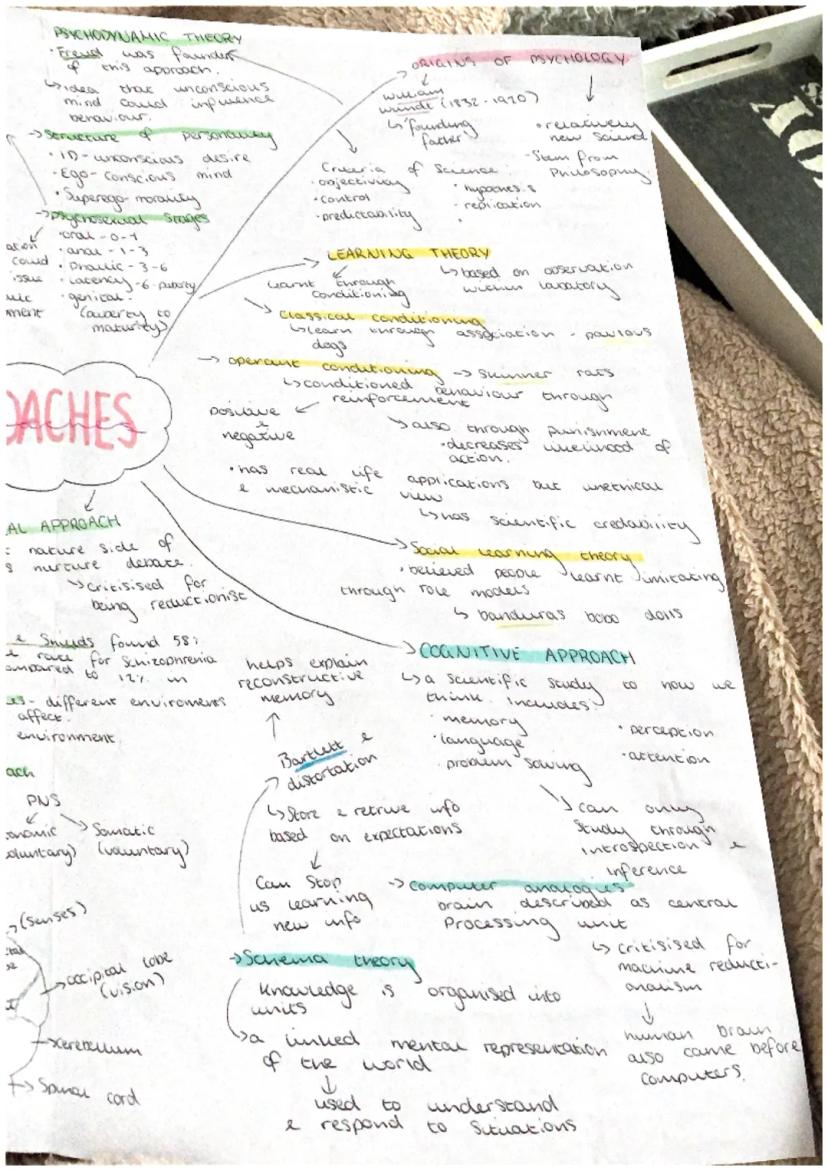 PSYCHODYNAMIC THEORY
· Freud was founder
of this approach.
↳ idea that unconscious
mind could influence
behaviour.
→ Structure of personality
· ID - unconscious desire
· Ego - conscious mind
· Superego - morality
→ Psychosexual Stages
· oral - 0-1
· anal - 1-3
· Phallic - 3-6
· latency - 6 - puberty
· genital -
(puberty to
maturity)
could
issue
ORIGINS OF PSYCHOLOGY
William
Wundt (1832-1920)
↳ founding
father
· relatively
new science
- Stem from
Philosophy.
Criteria of Science.
· objectivity
· control
· predictability
· hypothesis
· replication
·
LEARNING THEORY
learnt through
conditioning
↳ based on observation
within laboratory
Classical conditioning
↳ learn through association - pavlovs
dogs
→ operant conditioning → Skinner rats
↳ conditioned behaviour through
reinforcement
positive
&
negative
↳ also through punishment
· decreases likelihood of
action.
· has real life applications but unethical
& mechanistic view
↳ has scientific credability
Social learning theory
· believed people learnt imitating
through role models
↳ banduras bobo dolls
OACHES
AL APPROACH
nature side of
nurture debate.
↳ critisised for
being reductionist
& Shields found 58%
rate for Schizophrenia
ompared to 12% in
es - different enviroments
affect.
environment.
ach
PNS
Somatic
(voluntary)
oluntary)
(senses)
→ occipital lobe
(vision)
→ cerebellum
→ Spinal cord
COGNITIVE APPROACH
↳ a scientific study to how we
think. Includes:
· memory
· language
· problem solving
· perception
· attention
↳ can only
study through
introspection &
inference
helps explain
reconstructive
memory
Bartlett &
distortation
↳ Store & retrive info
based on expectations
Can Stop
us learning
new info
→ computer analogies
brain described as central
Processing unit
↳ critisised for
machine reducti-
onalism
human brain
also came before
computers.
→ Schema theory
Knowledge is organised into
units
↳ a linked mental representation
of the world
used to understand
& respond to situations